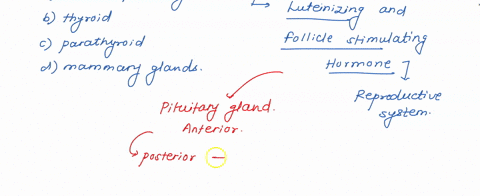 b) thyroid
c) parathyroid
d) mammary glands.
Lutenizing and
follicle stimulating
Hormone
Reproductive
system.
Pituitary gland.
Anterior.
posterior —